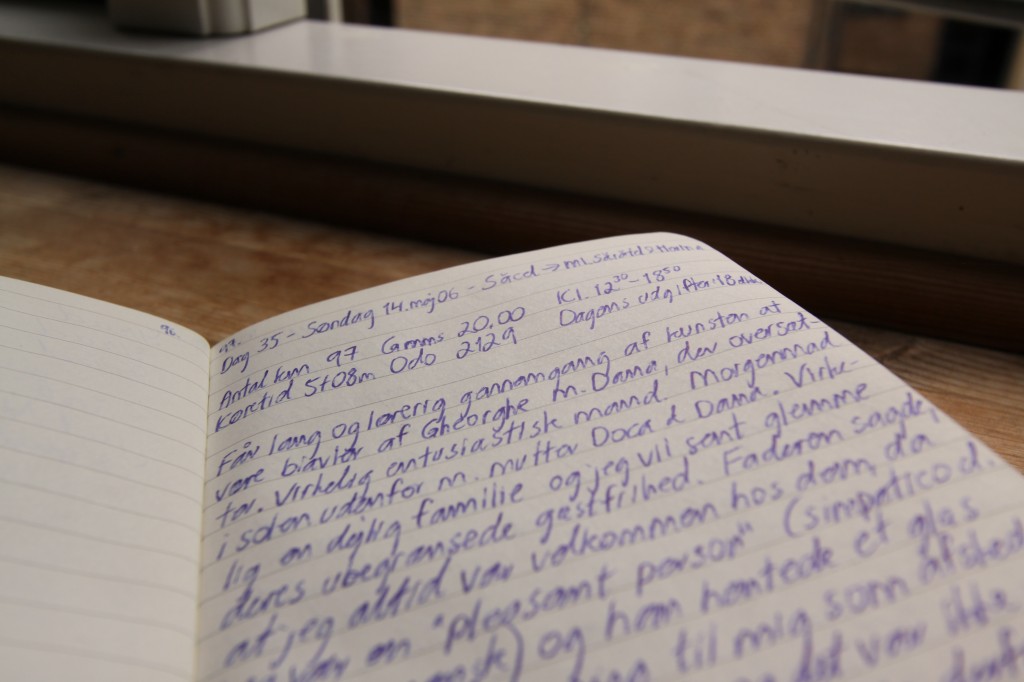 96.
Dag 35 - Søndag 14. maj 06 - Săcel →
Antal km 97 Gennms 20.00 Kl. 12³⁰ - 18⁵⁰
Køretid 5t08m Odo 2129 Dagens udgifter: 18
Får lang og lærerig gennemgang af kunsten at
være biavler af Gheorghe m. Dana, der oversæt-
ter. Virkelig entusiastisk mand. Morgenmad
i solen udenfor m. mutter Doca & Dana. Virke-
lig en dejlig familie og jeg vil sent glemme
deres ubegrænsede gæstfrihed. Faderen sagde,
at jeg altid var velkommen hos dem, da
var en "pleasant person" (simpatico d.
) og han hentede et glas
til mig som afsked
det var ikke